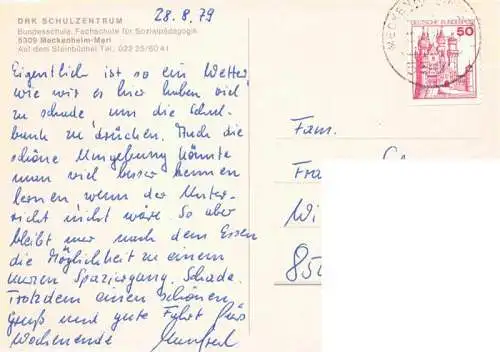 28.8.79
DRK SCHULZENTRUM
Bundesschule, Fachschule für Sozialpädagogik
5309 Meckenheim-Merl
Auf dem Steinbüchel Tel. 022 25/60 41
DEUTSCHE BUNDESPOST
50
Eigentlich ist so ein Wetter,
wie wir es hier haben viel
zu schade, um die Schul-
bank zu drücken. Auch die
schöne Umgebung könnte
man viel besser kennen
lernen wenn der Unter-
richt nicht wäre. So aber
bleibt nur nach dem Essen
die Möglichkeit zu einem
kurzen Spaziergang. Schade.
Trotzdem einen schönen
Gruß und gute Fahrt fürs
Wochenende Manfred
Fam.
Fra
Wi
850